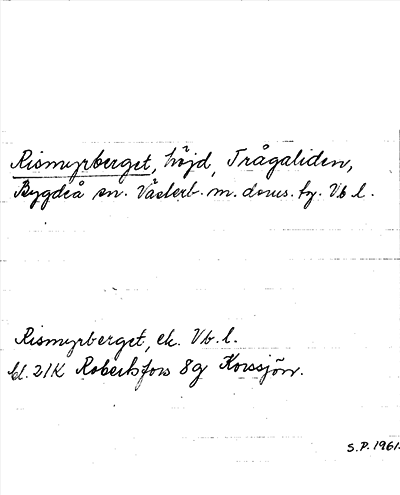 Rismyrberget, höjd, Trågaliden,
Bygdeå sn. Västerb. m. doms. fg. Vb l.
Rismyrberget, ek. Vb. l.
bl. 21K Robertsfors 8g Korssjön.
S.P. 1961.